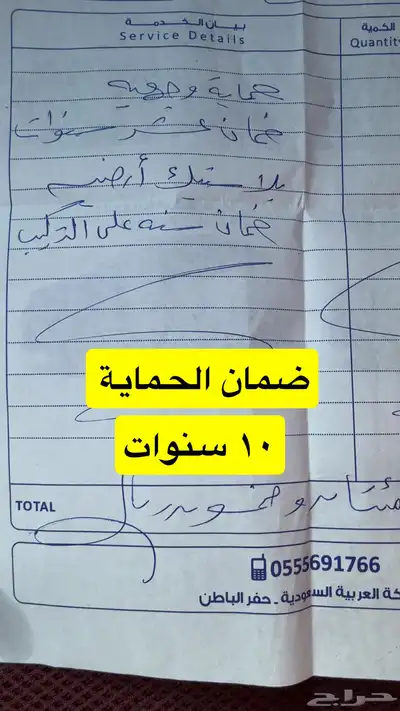 بيان الخدمة
Service Details
الكمية
Quantity
حماية وجهيه
ضمان عشر سنوات
بلاستيك أرضيه
ضمان سنه على التركيب
ضمان الحماية
١٠ سنوات
وخمسون ريال
TOTAL
0555691766
كة العربية السعودية ـ حفر الباطن
حراج